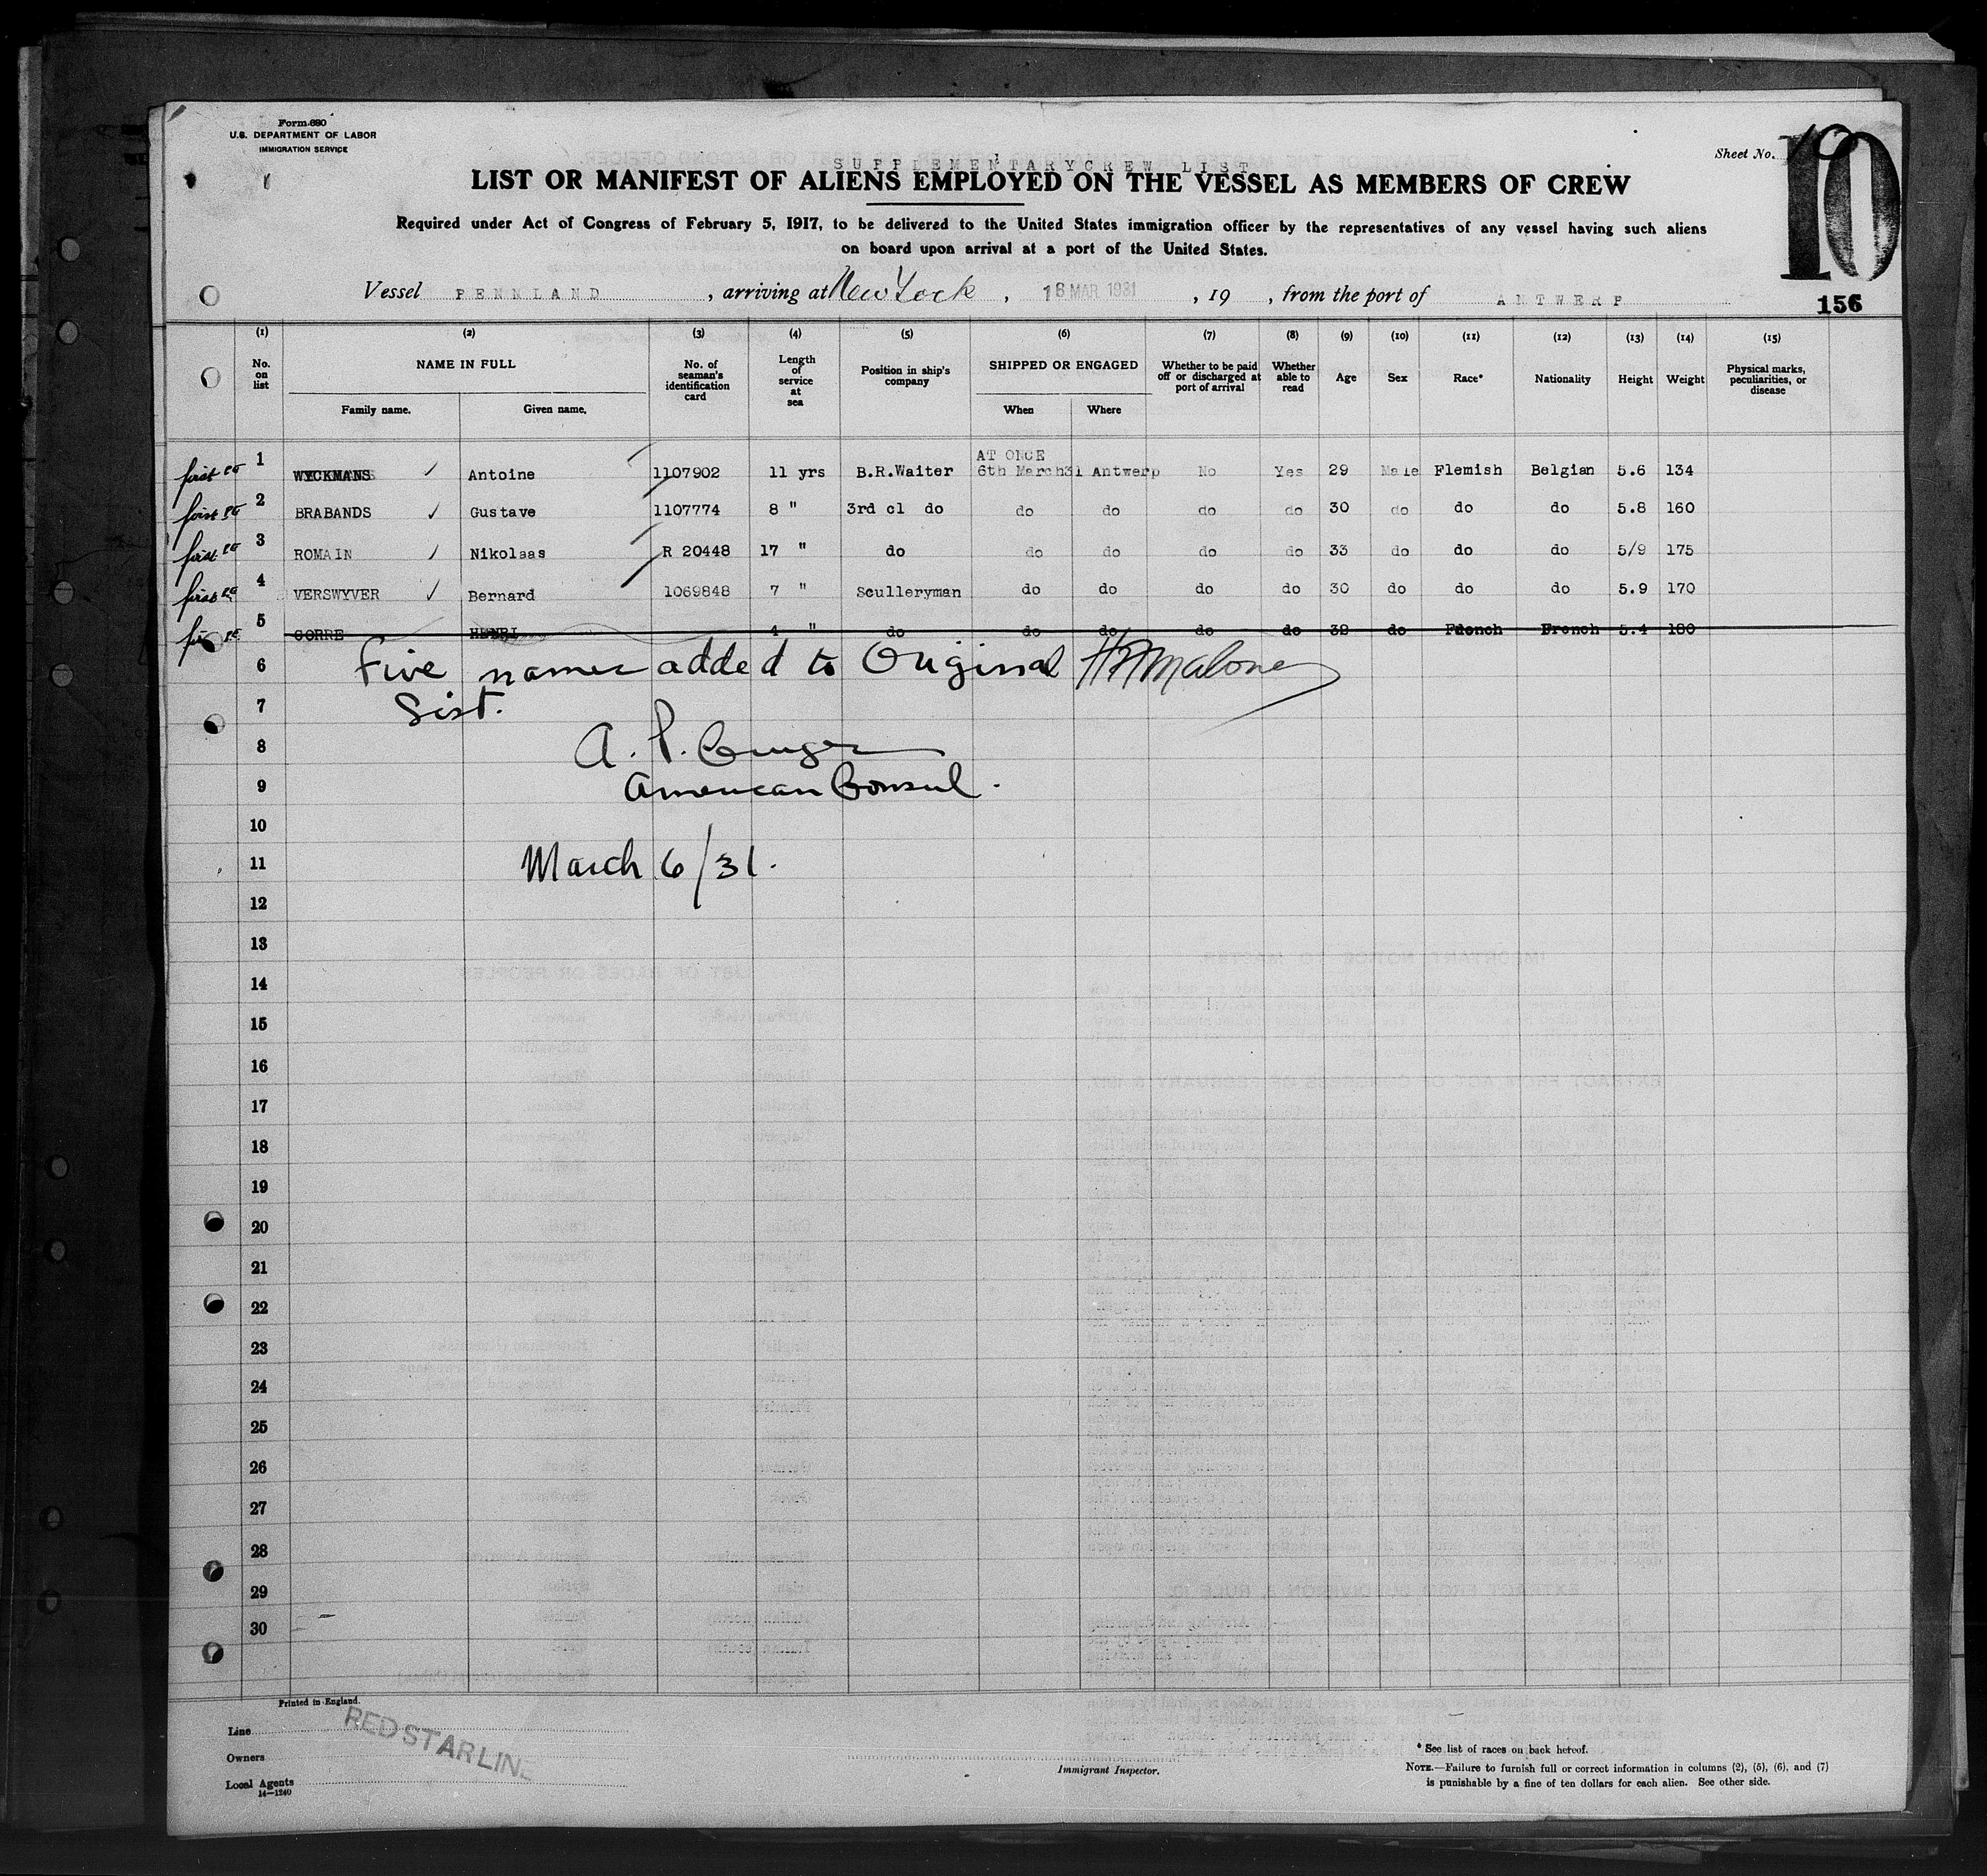 Form 680
U.S. DEPARTMENT OF LABOR
IMMIGRATION SERVICE
Sheet No. 10
10
SUPPLEMENTARY CREW LIST
LIST OR MANIFEST OF ALIENS EMPLOYED ON THE VESSEL AS MEMBERS OF CREW
Required under Act of Congress of February 5, 1917, to be delivered to the United States immigration officer by the representatives of any vessel having such aliens
on board upon arrival at a port of the United States.
Vessel PENNLAND , arriving at New York , 18 MAR 1931 , 19 , from the port of ANTWERP
156
(1) (2) (3) (4) (5) (6) (7) (8) (9) (10) (11) (12) (13) (14) (15)
No. on list NAME IN FULL Family name. Given name. No. of seaman's identification card Length of service at sea Position in ship's company SHIPPED OR ENGAGED When Where Whether to be paid off or discharged at port of arrival Whether able to read Age Sex Race* Nationality Height Weight Physical marks, peculiarities, or disease
AT ONCE
first 1 WYCKMANS ✓ Antoine 1107902 11 yrs B.R.Waiter 6th March31 Antwerp No Yes 29 Male Flemish Belgian 5.6 134
first 2 BRABANDS ✓ Gustave 1107774 8 " 3rd cl do do do do do 30 do do do 5.8 160
first 3 ROMAIN ✓ Nikolaas R 20448 17 " do do do do do 33 do do do 5/9 175
first 4 VERSWYVER ✓ Bernard 1069848 7 " Sculleryman do do do do 30 do do do 5.9 170
5 CORRE HENRI 4 " do do do do do 32 do French French 5.4 180
6 Five names added to Original
7 List.
8 A. P.
9 American Consul.
10
11 March 6/31.
12
13
14
15
16
17
18
19
20
21
22
23
24
25
26
27
28
29
30
Printed in England.
Line
RED STAR LINE
Owners
Local Agents
14—1240
Immigrant Inspector.
* See list of races on back hereof.
NOTE.—Failure to furnish full or correct information in columns (2), (5), (6), and (7)
is punishable by a fine of ten dollars for each alien. See other side.